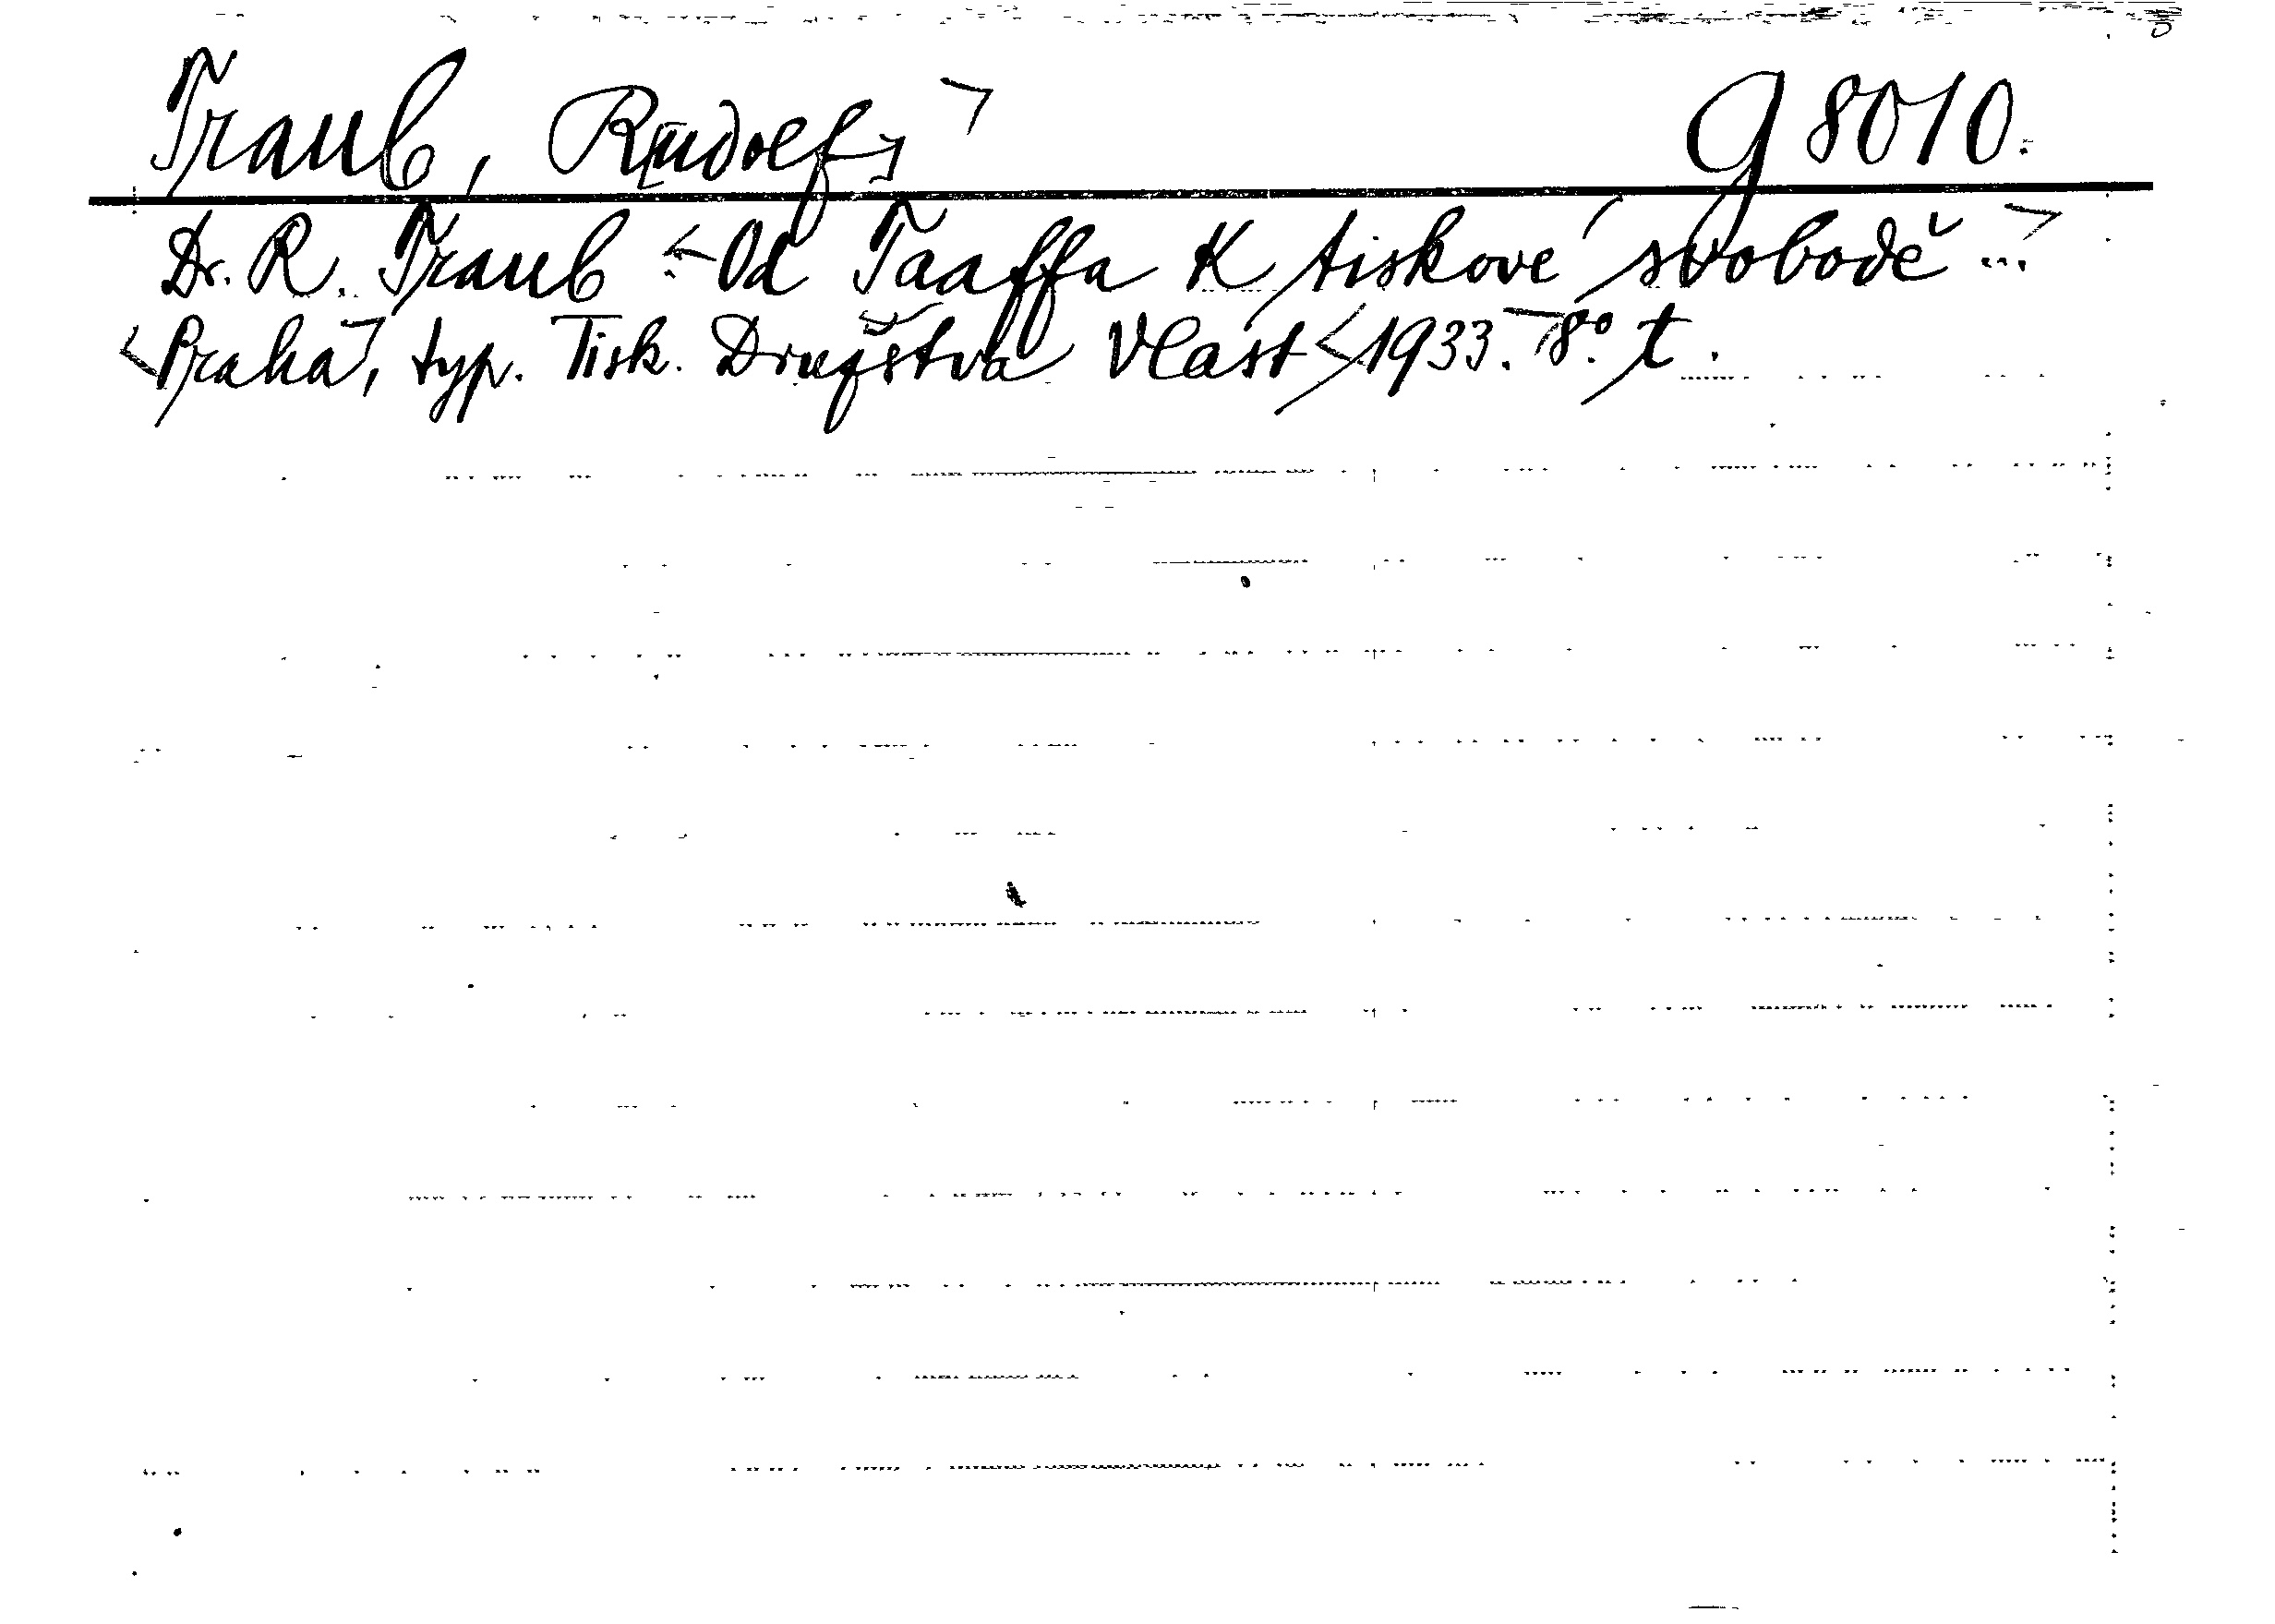 Traub, R[udolf] g 8010.
Dr. R. Traub : Od Taaffa K tiskové svobodě ...
Praha, typ. Tisk. Družstva Vlast 1933. 8°. t.